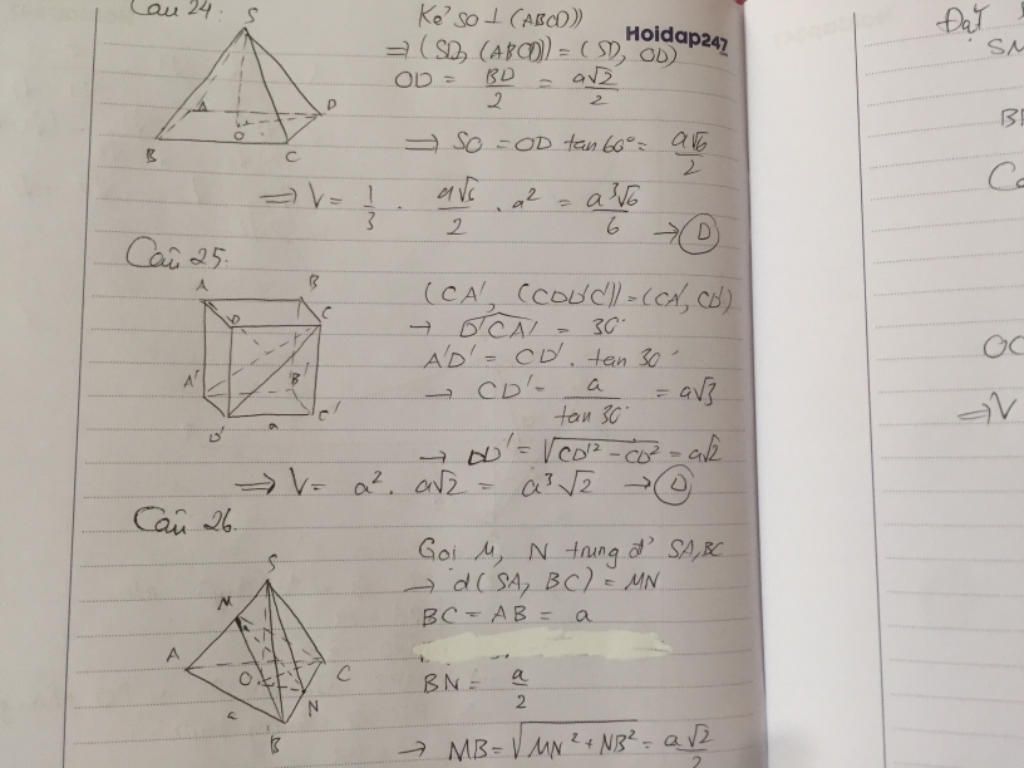 Câu 24:
Kẻ SO ⊥ (ABCD)
Hoidap247
⇒ (SD, (ABCD)) = (SD, OD)
OD = BD/2 = a√2/2
⇒ SO = OD tan 60° = a√6/2
⇒ V = 1/3 . a√6/2 . a² = a³√6/6 → D
S
A
D
O
B
C
Câu 25:
(CA', (CDD'C')) = (CA', CD')
→ D'CA' = 30°
A'D' = CD' . tan 30°
→ CD' = a/tan 30° = a√3
→ DD' = √(CD'² - CD²) = a√2
⇒ V = a² . a√2 = a³√2 → D
A
B
D
C
A'
B'
D'
a
C'
Câu 26.
Gọi M, N trung đ' SA, BC
→ d(SA, BC) = MN
BC = AB = a
BN = a/2
→ MB = √(MN² + NB²) = a√2/2
S
M
A
O
C
N
B
Đặt
SM
OC
⇒ V